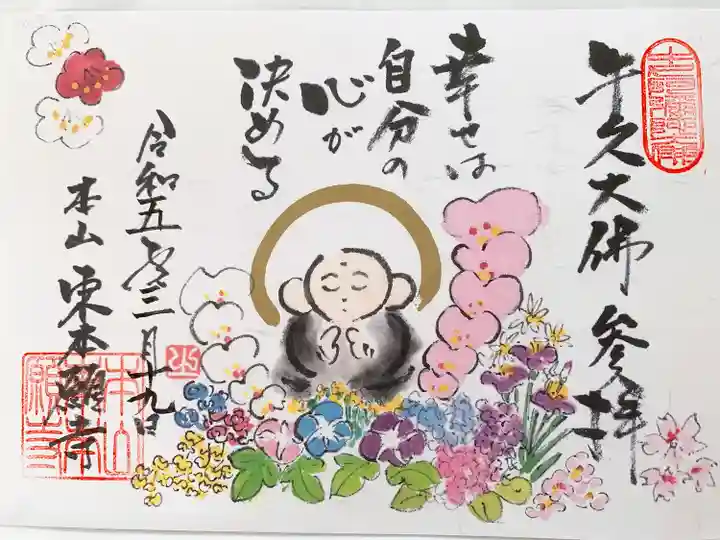 牛久大佛 参拝
幸せは
自分の
心が
決める
令和五年三月十九日
本山 東本願寺
本山
本
願寺